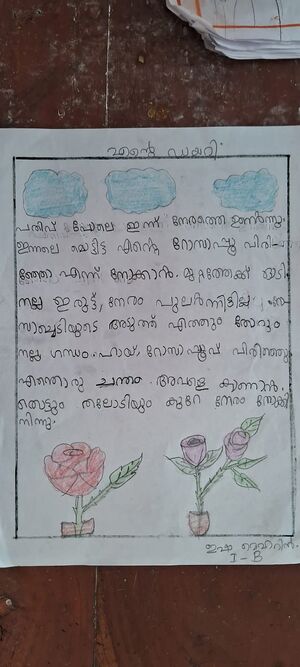 എന്റെ ഡയറി
പതിവ് പോലെ ഇന്ന് നേരത്തെ ഉണർന്നു.
ഇന്നലെ മൊട്ടിട്ട എന്റെ റോസാപ്പൂ വിരി-
ഞ്ഞോ എന്ന് നോക്കാൻ മുറ്റത്തേക്ക് ഓടി.
നല്ല ഇരുട്ട്, നേരം പുലർന്നിട്ടില്ല. റോ-
സാച്ചെടിയുടെ അടുത്ത് എത്തും തോറും
നല്ല ഗന്ധം. ഹായ്, റോസാപ്പൂവ് വിരിഞ്ഞു
എന്തൊരു ചന്തം അവളെ കാണാൻ.
തൊട്ടും തലോടിയും കുറേ നേരം നോക്കി
നിന്നു.
ഇഷ
I-B